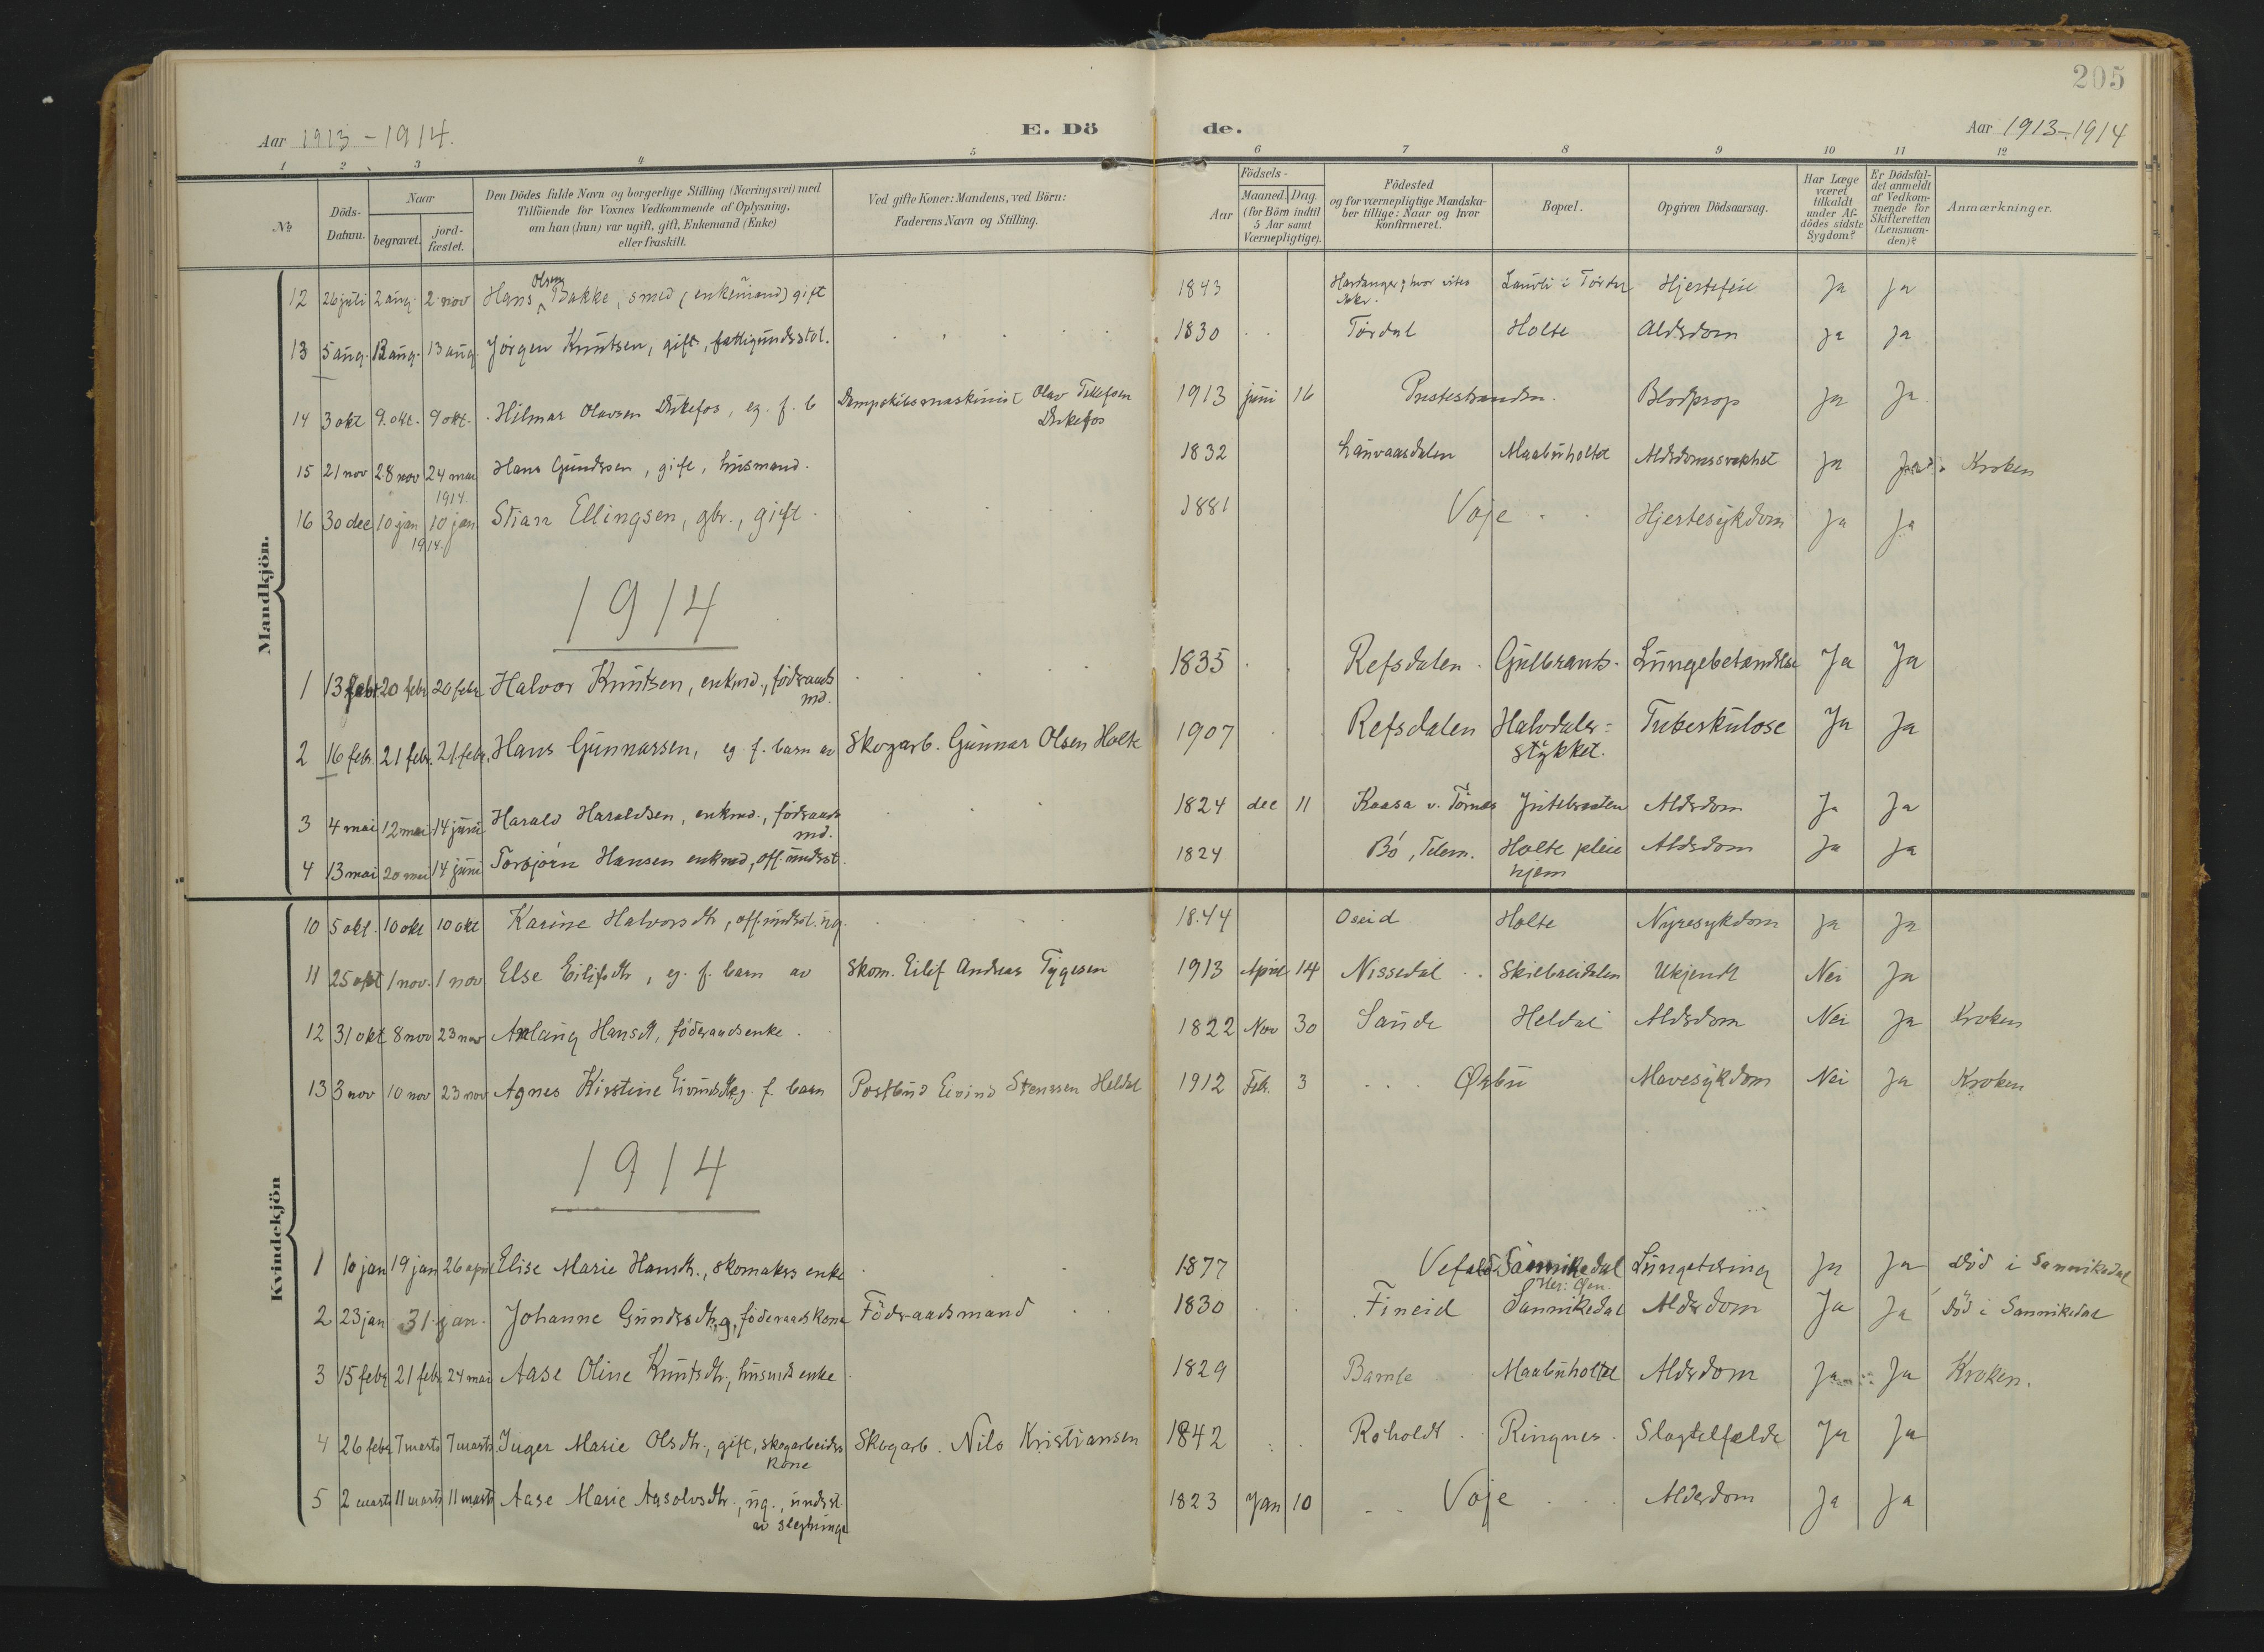 205
Aar 1913-1914. E. Dö de. Aar 1913-1914
1 2 3 4 5 6 7 8 9 10 11 12
No Döds-Datum. Naar begravet. jord-fæstet. Den Dödes fulde Navn og borgerlige Stilling (Næringsvei) med Tilföiende for Voxnes Vedkommende af Oplysning, om han (hun) var ugift, gift, Enkemand (Enke) eller fraskilt. Ved gifte Koner: Mandens, ved Börn: Faderens Navn og Stilling. Födsels- Aar Maaned Dag (for Börn indtil 5 Aar samt Værnepligtige). Födested og for værnepligtige Mandskaber tillige: Naar og hvor Konfirmeret. Bopæl. Opgiven Dödsaarsag. Har Læge været tilkaldt under Afdödes sidste Sygdom? Er Dödsfaldet anmeldt af Vedkommende for Skifteretten (Lensmanden)? Anmærkninger.
Mandkjön.
12 26 juli 2 aug. 2 nov Hans Olsen Bakke, smed (enkemand) gift 1843 Hardanger, hvor vites ikke. Laurli i Tördal Hjertefeil Ja Ja
13 5 aug. 13 aug. 13 aug. Jørgen Knutsen, gift, fattigundsstøt. 1830 Tørdal Holte Aldsdom Ja Ja
14 3 okt 9. okt. 9 okt. Hilmar Olavsen Dirkefos, eg. f. b Dampskibsmaskinist Olav Tellefsen Dirkefos 1913 juni 16 Prestestranden. Blodprop Ja Ja
15 21 nov 28 nov 24 mai 1914. Hans Gundersen, gift, husmand. 1832 Lauvaasdalen Maabuholtet Alderdomssvakhet Ja Ja Kroken
16 30 dec 10 jan 1914. 10 jan Stian Ellingsen, gbr., gift 1881 Voje Hjertesykdom Ja Ja
1914
1 13 febr 20 febr 20 febr Halvor Knutsen, enkmd., föderaadsmd. 1835 Refsdalen Gulbrants. Lungebetændelse Ja Ja
2 16 febr. 21 febr. 21. febr. Hans Gunnarsen, eg. f. barn av Skogarb. Gunnar Olsen Holte 1907 Refsdalen Halvdalsstykket. Tuberkulose Ja Ja
3 4 mai 12 mai 14 juni Harald Haraldsen, enkmd., föderaadsmd. 1824 dec 11 Kaasa v. Törnes Alderdom Ja Ja
4 13 mai 20 mai 14 juni Torbjørn Hansen enkmd, off. undsst. 1824 Bö, Telem. Holte pleiehjem Aldsdom Ja Ja
Kvindekjön
10 5 okt. 10 okt 10 okt Karine Halvorsdtr, off. undsst. ug. 1844 Oseid Holte Nyresykdom Ja Ja
11 25 okt 1 nov. 1 nov Else Eilifsdtr, eg. f. barn av Skom. Eilif Andreas Tygesen 1913 April 14 Nissedal Skibreidalen Ukjendt Nei Ja
12 31 okt 8 nov 23 nov Anlaug Hansdtr, föderaadsenke. 1822 Nov 30 Sande Heldal Aldsdom Nei Ja Kroken
13 3 nov 10 nov 23 nov Agnes Kirstine Eivindsdtr eg. f. barn Postbud Eivind Stenssen Heldal 1912 Feb. 3 Ørbu Mavesykdom Nei Ja Kroken
1914
1 10 jan 19 jan 26 april Elise Marie Hansdtr., skomakers enke 1877 Vefald Sannikedal Lungetæring Ja Ja Död i Sannikedal
2 23 jan 31. jan. Johanne Gundersdtr, g, föderaadskone Föderaadsmand 1830 Fineid Sannikedal Alderdom Ja Ja Död i Sannikedal
3 15 febr 21 febr 24 mai Aase Oline Knutsdtr., husmds enke 1829 Bamle Maabuholtet Aldsdom Ja Ja Kroken.
4 26 febr 7 marts 7 marts Inger Marie Olsdtr., gift, skogarbeiders kone Skogarb. Nils Kristiansen 1842 Roholdt Ringnes Slagtilfælde Ja Ja
5 2 marts 11 marts 11 marts Aase Marie Aasolvsdtr., ug., undsst. av slegtninge 1823 Jan 10 Voje Alderdom Ja Ja